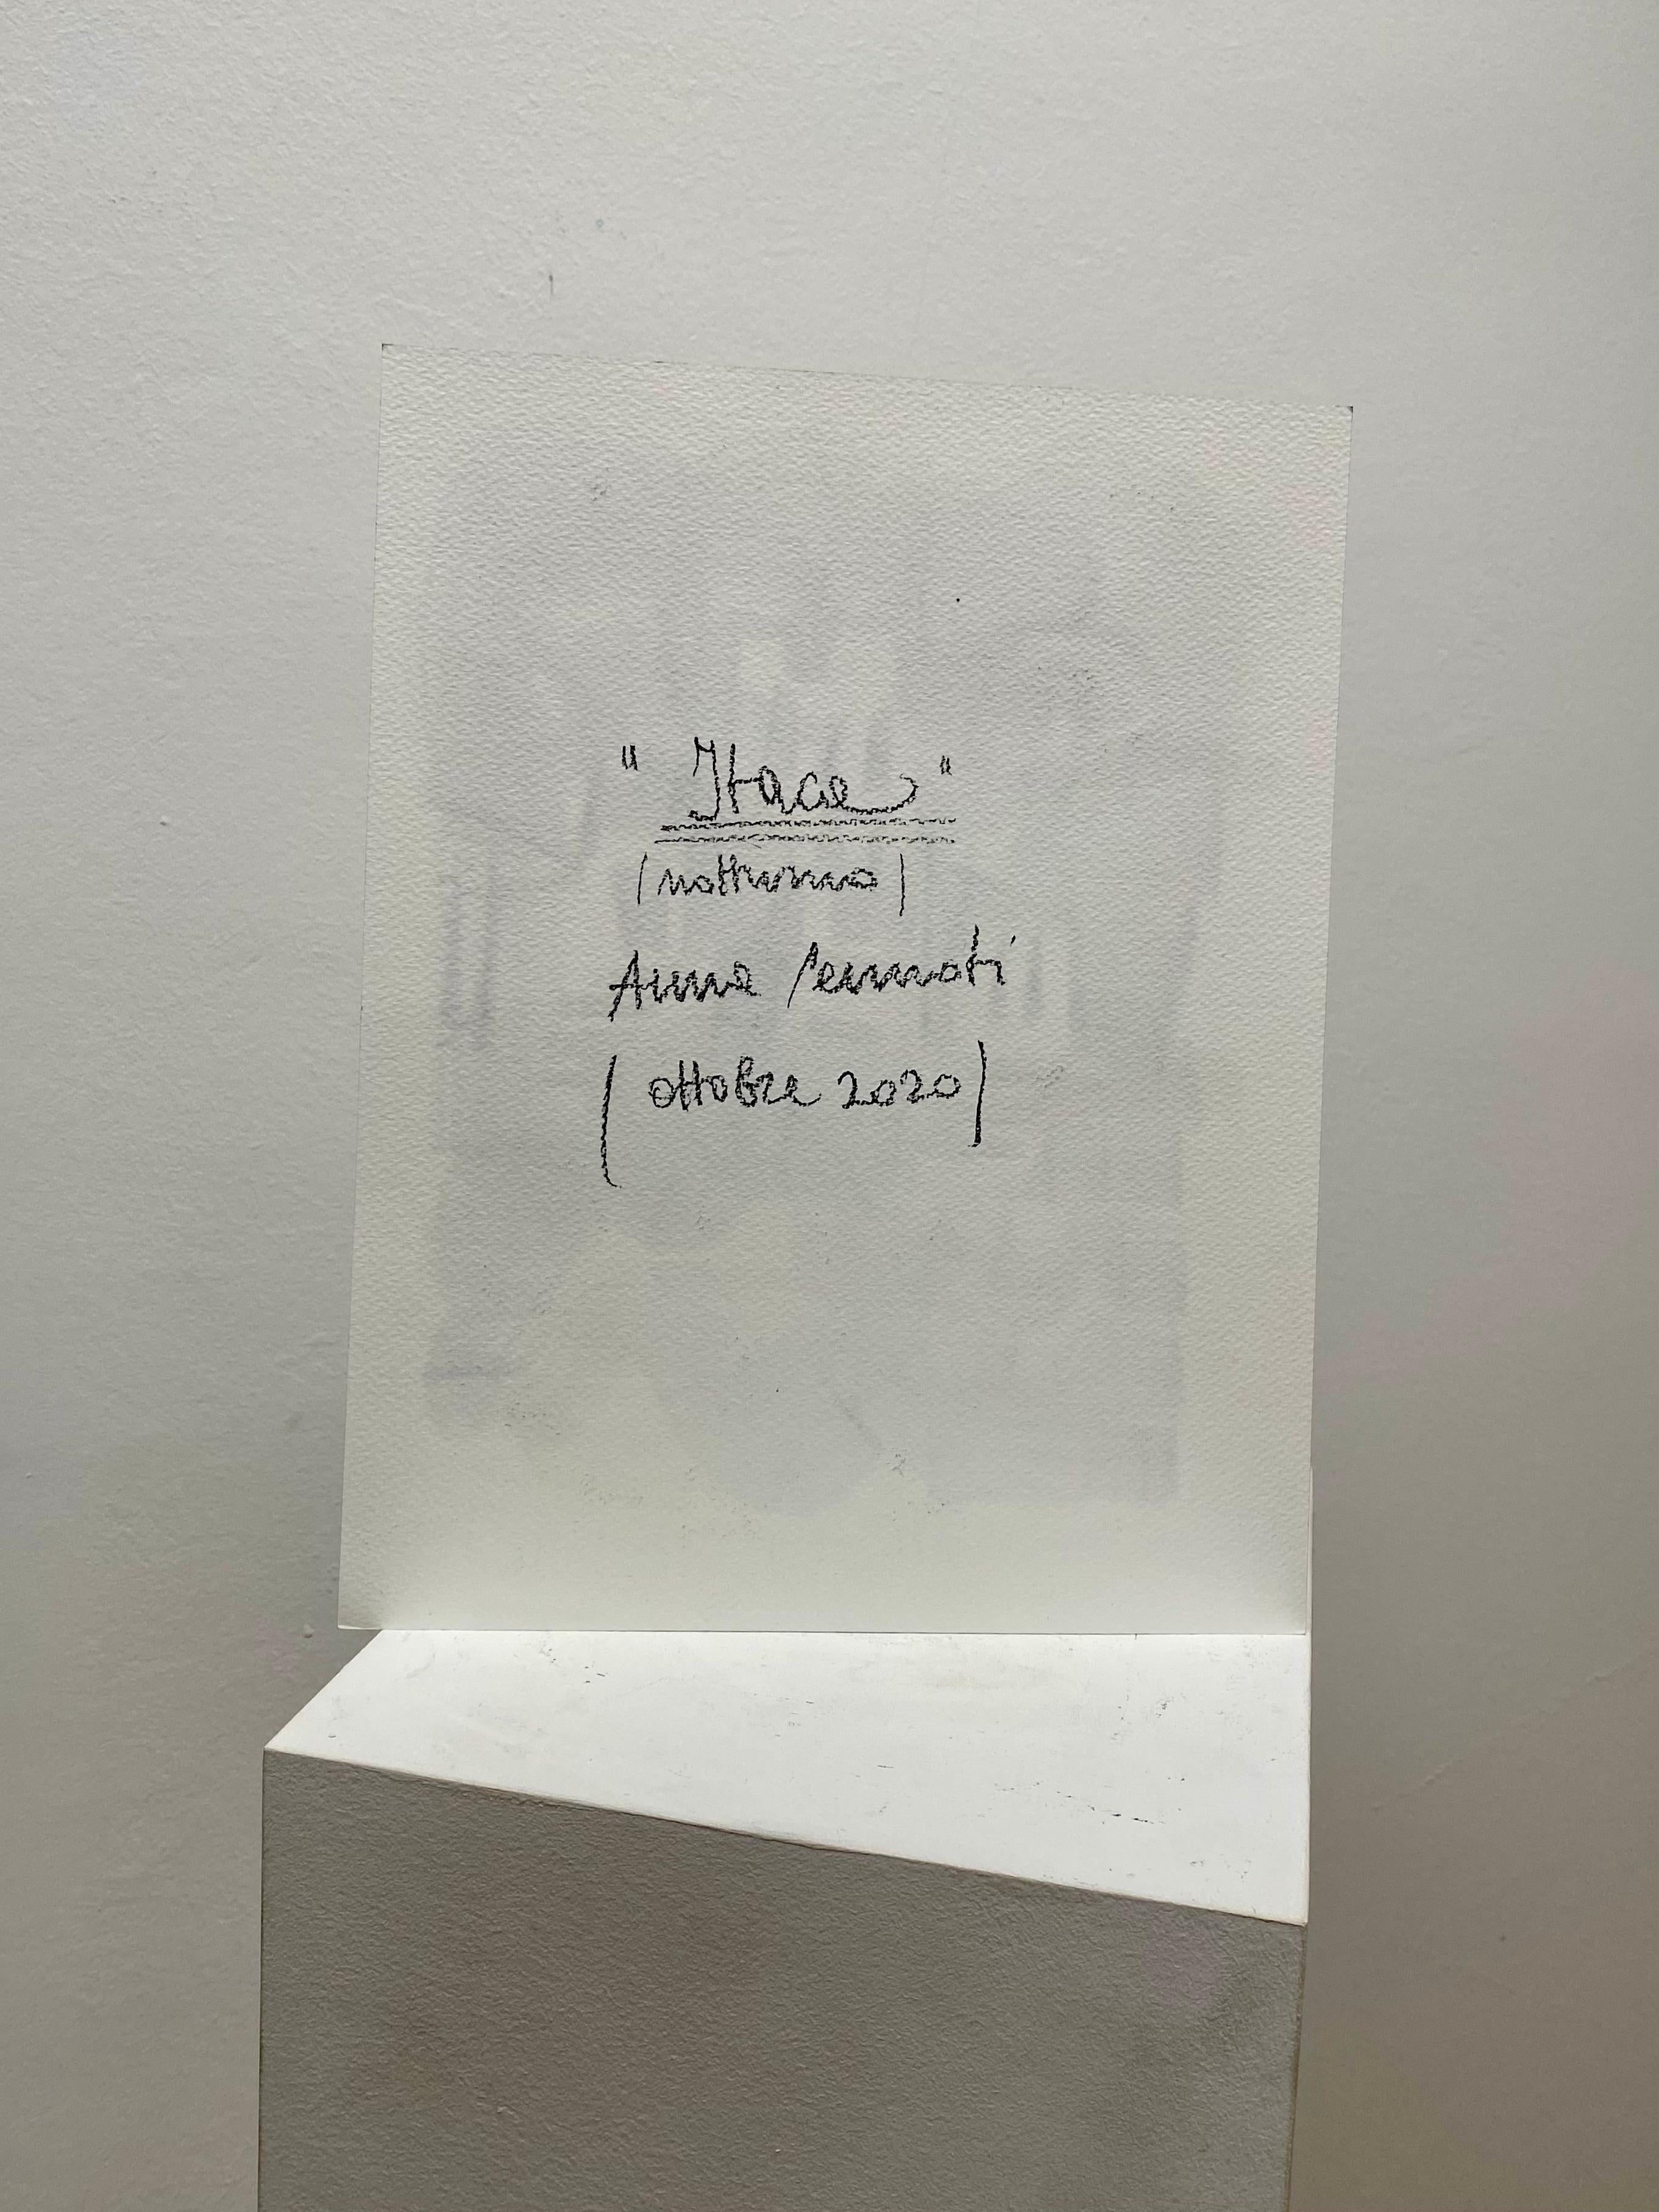 "Itaca"
(notturno)
Anna Pennati
(ottobre 2020)